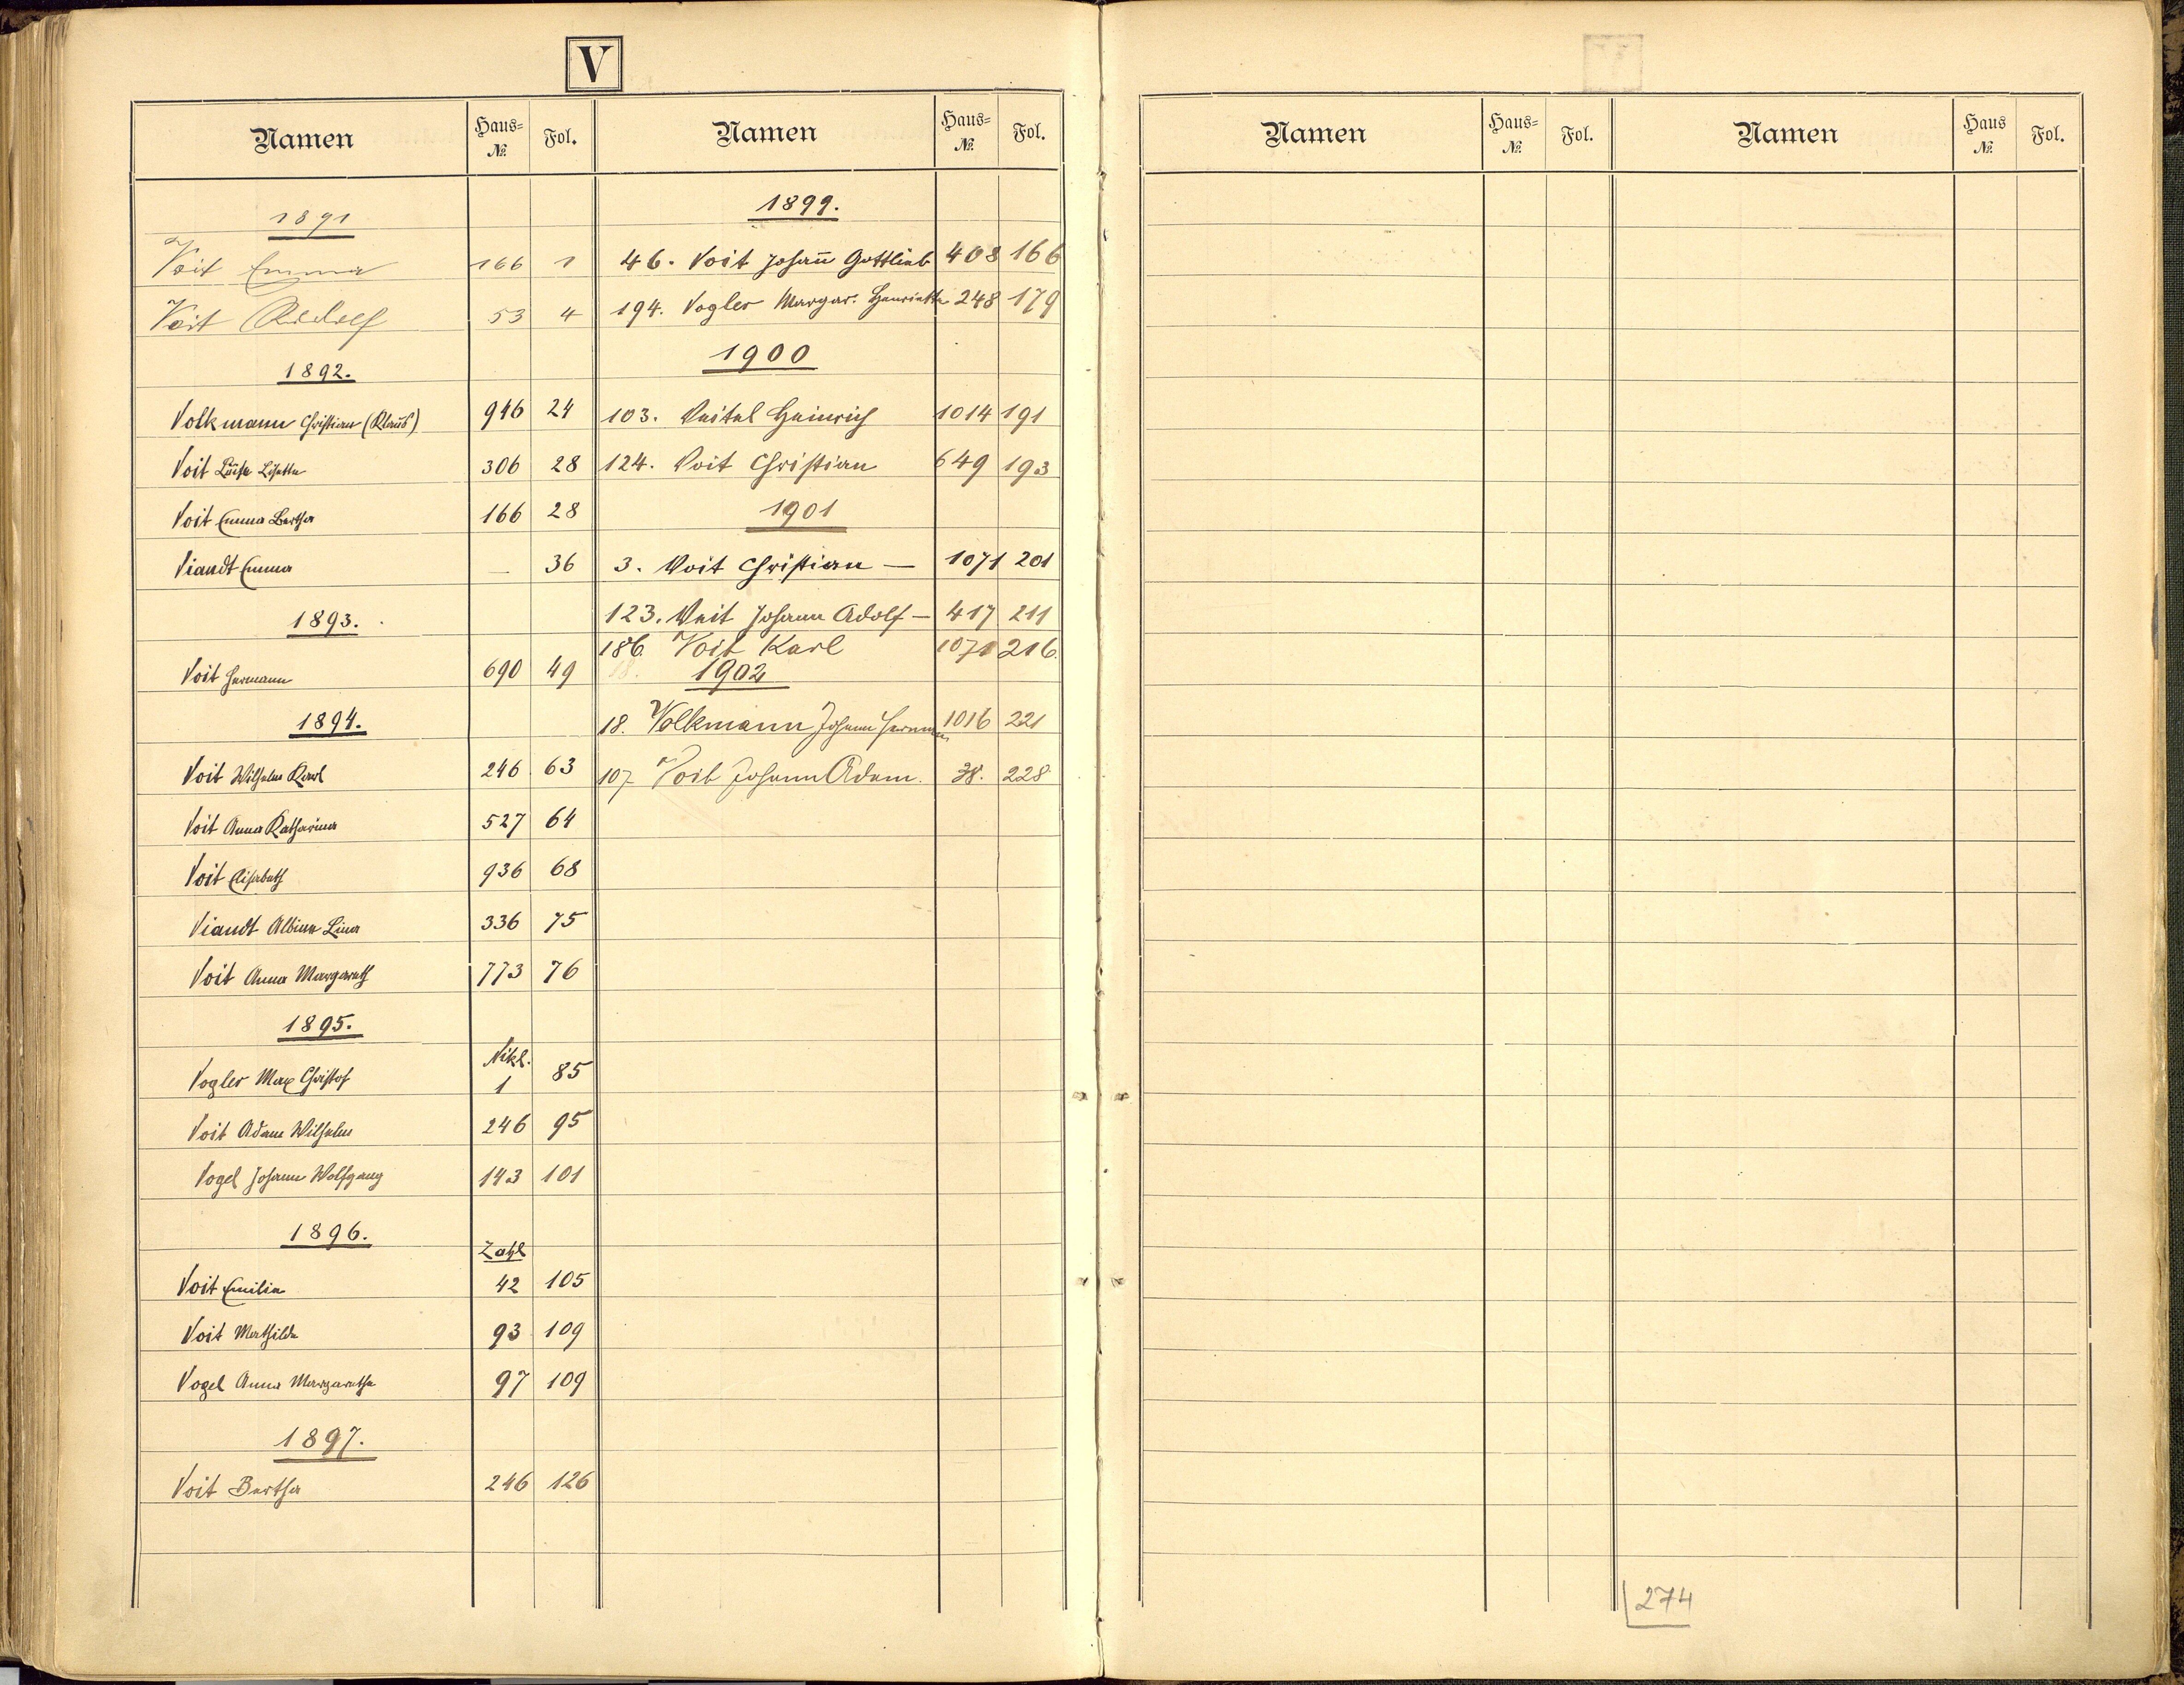 V
Namen Haus= № Fol.
1891
Voit Emma 166 1
Voit Rudolf 53 4
1892.
Volkmann Christian (Klaus) 946 24
Voit Luise Lisette 306 28
Voit Emma Bertha 166 28
Viandt Emma — 36
1893.
Voit Hermann 690 49
1894.
Voit Wilhelm Karl 246 63
Voit Anna Katharina 527 64
Voit Elisabeth 936 68
Viandt Albine Lina 336 75
Voit Anna Margareth 773 76
1895.
Vogler Max Christof Nikl. 1 85
Voit Adam Wilhelm 246 95
Vogel Johann Wolfgang 143 101
1896.
Zahl
Voit Emilie 42 105
Voit Mathilde 93 109
Vogel Anna Margaretha 97 109
1897.
Voit Bertha 246 126
Namen Haus= № Fol.
1899.
46. Voit Johañ Gottlieb 408 166
194. Vogler Margar. Henriette 248 179
1900
103. Veitel Heinrich 1014 191
124. Voit Christian 649 193
1901
3. Voit Christian — 1071 201
123. Veit Johann Adolf — 417 211
186. Voit Karl 1071 216.
18. 1902
18. Volkmann Johann Hermann 1016 221
107 Voit Johann Adam. 38. 228
Namen Haus= № Fol.
Namen Haus № Fol.
274